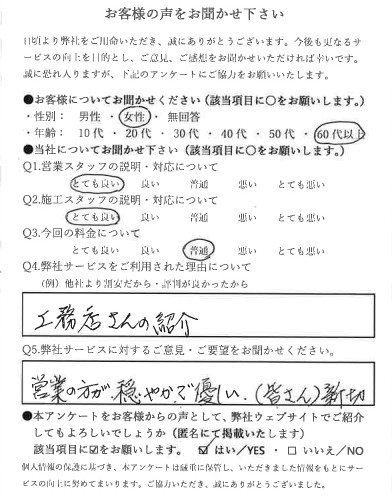 お客様の声をお聞かせ下さい
日頃より弊社をご用命いただき、誠にありがとうございます。今後も更なるサ
ービスの向上を目的とし、ご意見、ご感想をお聞かせいただければ幸いです。
誠に恐れ入りますが、下記のアンケートにご協力をお願いいたします。
●お客様についてお聞かせください（該当項目に〇をお願いします。）
・性別： 男性 ・ 女性 ・ 無回答
・年齢： 10代 ・ 20代 ・ 30代 ・ 40代 ・ 50代 ・ 60代以上
●当社についてお聞かせ下さい（該当項目に〇をお願いします。）
Q1.営業スタッフの説明・対応について
とても良い 良い 普通 悪い とても悪い
Q2.施工スタッフの説明・対応について
とても良い 良い 普通 悪い とても悪い
Q3.今回の料金について
とても良い 良い 普通 悪い とても悪い
Q4.弊社サービスをご利用された理由について
（例）他社より割安だから・評判が良かったから
工務店さんの紹介
Q5.弊社サービスに対するご意見・ご要望をお聞かせください。
営業の方が穏やかで優しい、（皆さん）親切
●本アンケートをお客様からの声として、弊社ウェブサイトでご紹介
してもよろしいでしょうか（匿名にて掲載いたします）
該当項目に☑をお願します。 ☑ はい／YES ・ □ いいえ／NO
個人情報の保護に基づき、本アンケートは厳重に保管し、いただきました情報をもとにサー
ビスの向上に努めてまいります。ご協力いただき、誠にありがとうございました。